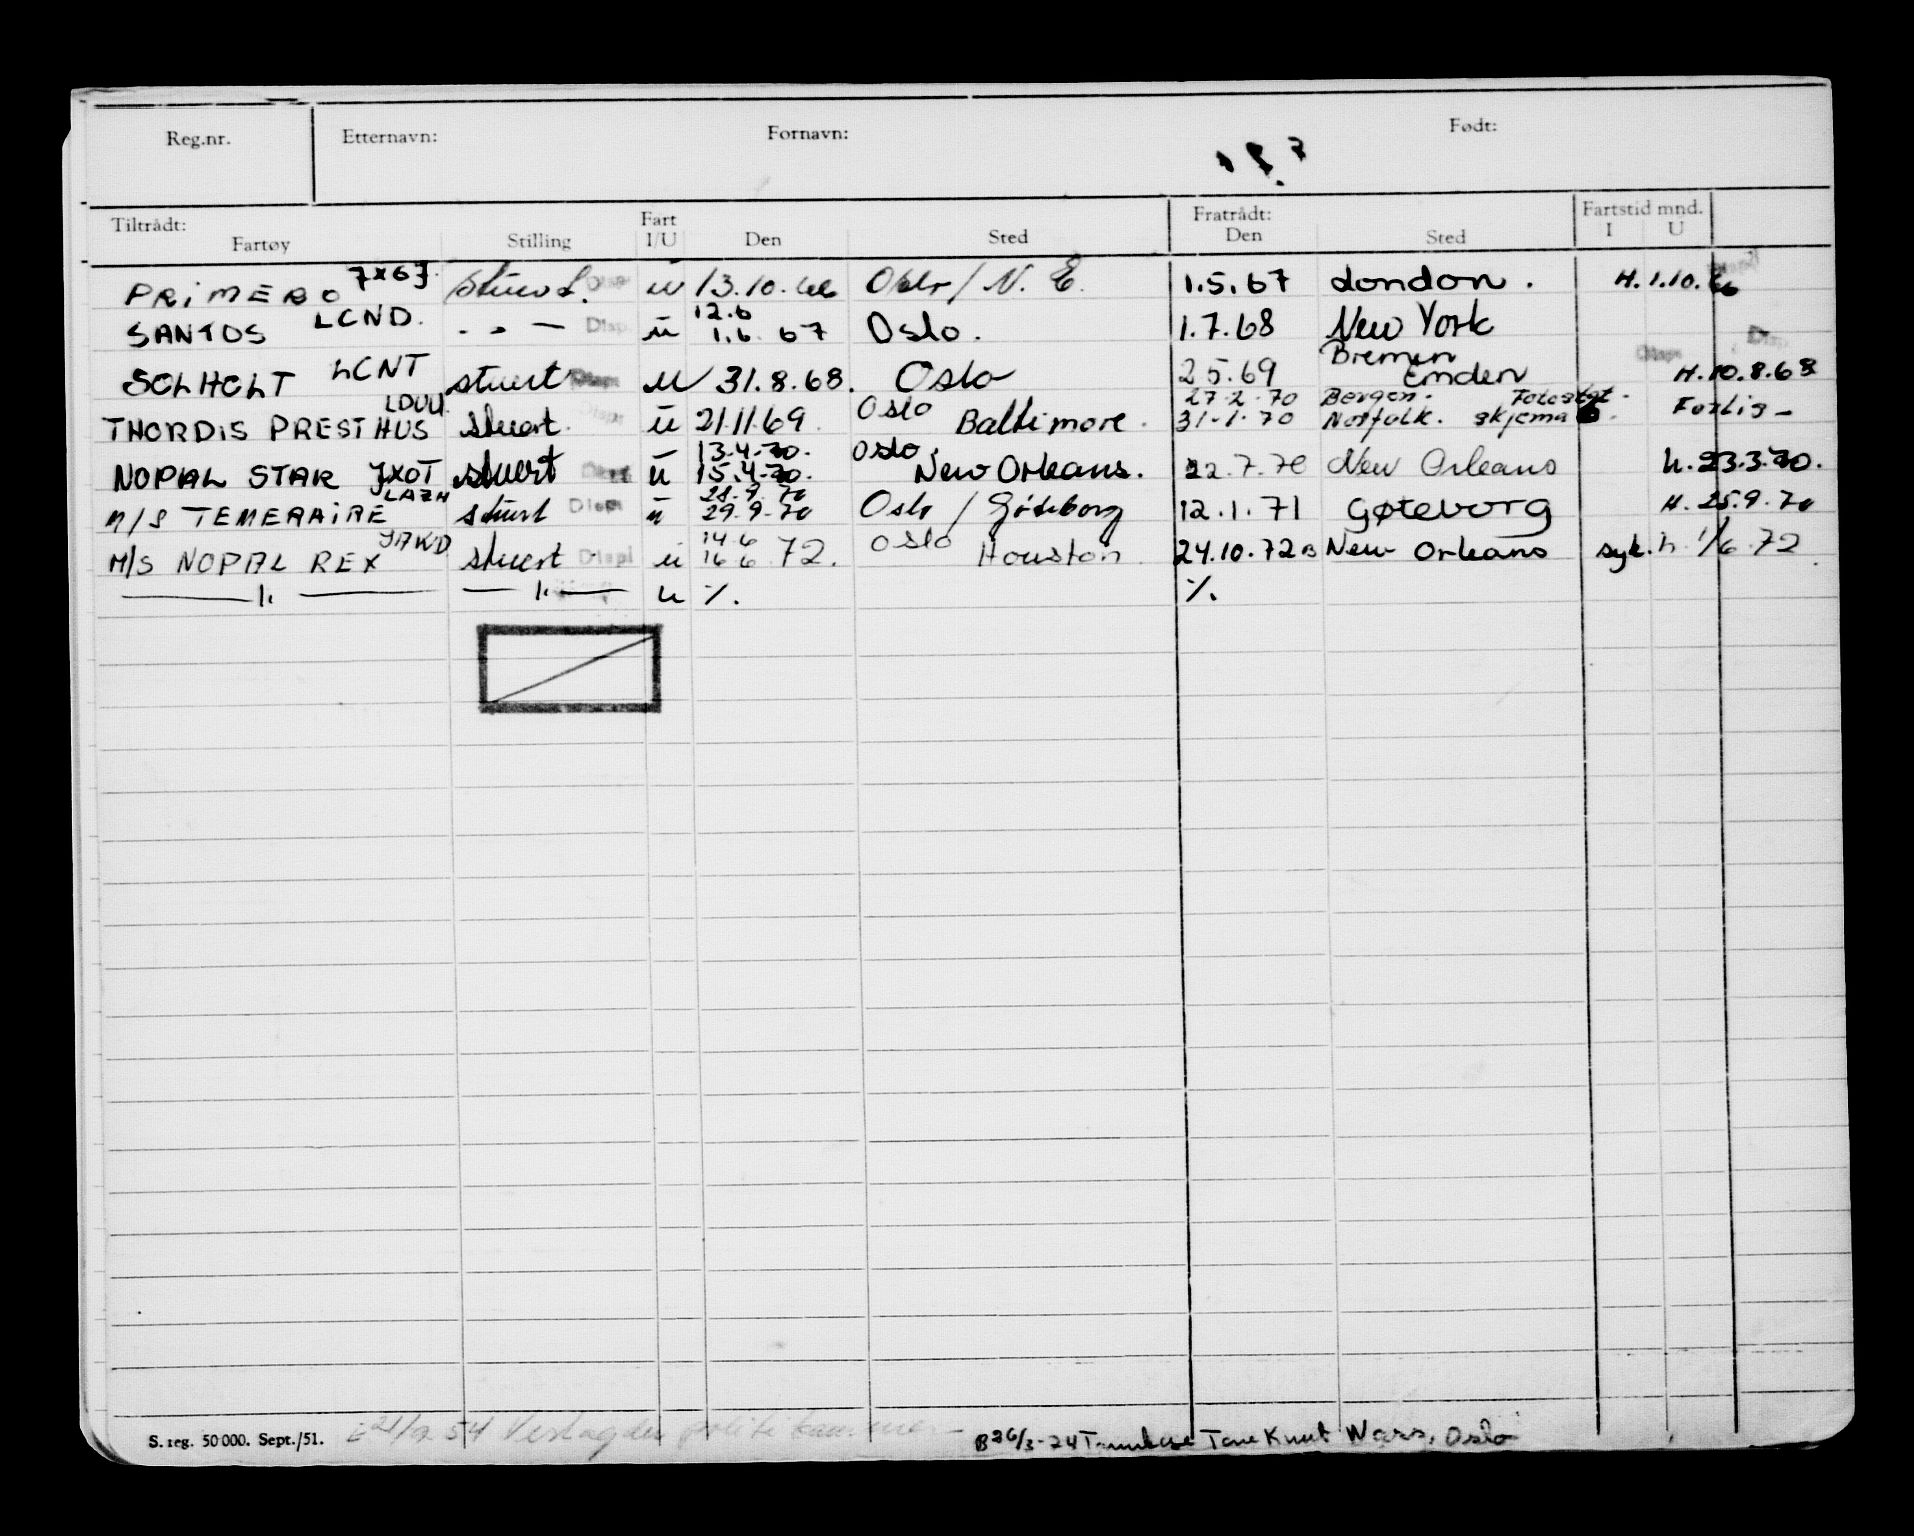 Reg.nr. Etternavn: Fornavn: Født:
Tiltrådt: Fartøy Stilling Fart I/U Den Sted Fratrådt: Den Sted Fartstid mnd. I U
PRIMERO 7XGJ stuert. Disp u 13.10.66 Oslo / N. E. 1.5.67 London. H. 1.10.66
SANTOS LCND. - " - Disp. u 12.6 1.6.67 Oslo. 1.7.68 New York
SOLHOLT LCNT stuert Disp u 31.8.68. Oslo 25.69 Bremen Emden H. 10.8.68
THORDIS PRESTHUS LDUU stuert. Disp u 21.11.69. Oslo Baltimore. 27-2-70 Bergen. 31-1-70 Norfolk. skjema Forlis -
NOPAL STAR JXOT stuert u 13.4-70. 15.4-70. Oslo. New Orleans. 22.7.70 New Orleans h. 23.3.70.
M/S TEMERAIRE LAZH stuert Displ u 28.9.70 29.9.70 Oslo / Göteborg 12.1.71 Gøteborg H. 25.9.70
M/S NOPAL REX JAKD stuert Displ u 14.6 16.6 72. Oslo Houston. 24.10.72 New Orleans syk. h. 1/6.72
— " — — " — u %. %.
S. reg. 50000. Sept./51. 54 B 26/3-74 Tone Knut Oslo